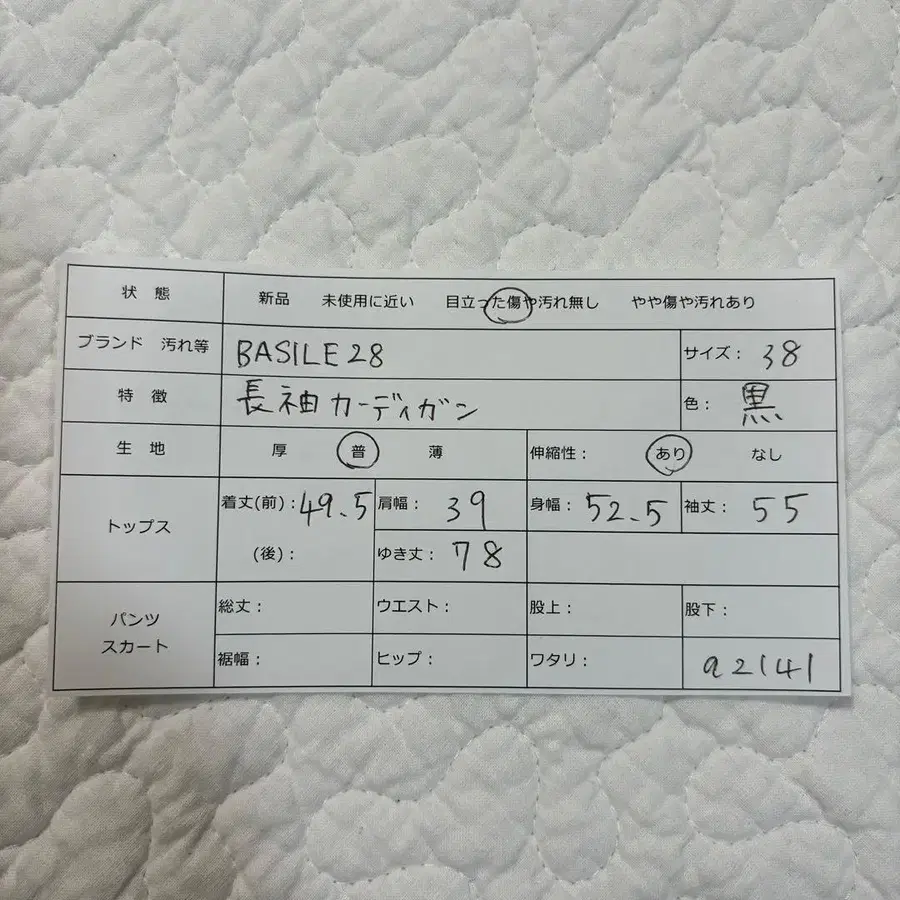 状 態 新品 未使用に近い 目立った傷や汚れ無し やや傷や汚れあり
ブランド 汚れ等 BASILE28 サイズ: 38
特 徴 長袖カーディガン 色: 黒
生 地 厚 普 薄 伸縮性: あり なし
トップス 着丈(前):49.5 肩幅: 39 身幅: 52.5 袖丈: 55
(後): ゆき丈: 78
パンツ スカート 総丈: ウエスト: 股上: 股下:
裾幅: ヒップ: ワタリ: a2141